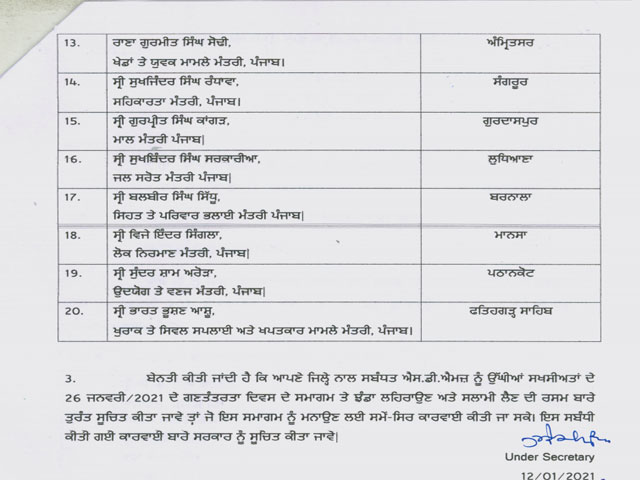 13. ਰਾਣਾ ਗੁਰਮੀਤ ਸਿੰਘ ਸੋਢੀ, ਅੰਮ੍ਰਿਤਸਰ
ਖੇਡਾਂ ਤੇ ਯੁਵਕ ਮਾਮਲੇ ਮੰਤਰੀ, ਪੰਜਾਬ।
14. ਸ੍ਰੀ ਸੁਖਜਿੰਦਰ ਸਿੰਘ ਰੰਧਾਵਾ, ਸੰਗਰੂਰ
ਸਹਿਕਾਰਤਾ ਮੰਤਰੀ, ਪੰਜਾਬ।
15. ਸ੍ਰੀ ਗੁਰਪ੍ਰੀਤ ਸਿੰਘ ਕਾਂਗੜ, ਗੁਰਦਾਸਪੁਰ
ਮਾਲ ਮੰਤਰੀ ਪੰਜਾਬ|
16. ਸ੍ਰੀ ਸੁਖਬਿੰਦਰ ਸਿੰਘ ਸਰਕਾਰੀਆ, ਲੁਧਿਆਣਾ
ਜਲ ਸਰੋਤ ਮੰਤਰੀ ਪੰਜਾਬ|
17. ਸ੍ਰੀ ਬਲਬੀਰ ਸਿੰਘ ਸਿੱਧੂ, ਬਰਨਾਲਾ
ਸਿਹਤ ਤੇ ਪਰਿਵਾਰ ਭਲਾਈ ਮੰਤਰੀ ਪੰਜਾਬ|
18. ਸ੍ਰੀ ਵਿਜੇ ਇੰਦਰ ਸਿੰਗਲਾ, ਮਾਨਸਾ
ਲੋਕ ਨਿਰਮਾਣ ਮੰਤਰੀ, ਪੰਜਾਬ|
19. ਸ੍ਰੀ ਸੁੰਦਰ ਸ਼ਾਮ ਅਰੋੜਾ, ਪਠਾਨਕੋਟ
ਉਦਯੋਗ ਤੇ ਵਣਜ ਮੰਤਰੀ, ਪੰਜਾਬ|
20. ਸ੍ਰੀ ਭਾਰਤ ਭੂਸ਼ਣ ਆਸ਼ੂ, ਫਤਿਹਗੜ੍ਹ ਸਾਹਿਬ
ਖੁਰਾਕ ਤੇ ਸਿਵਲ ਸਪਲਾਈ ਅਤੇ ਖਪਤਕਾਰ ਮਾਮਲੇ ਮੰਤਰੀ, ਪੰਜਾਬ।
3. ਬੇਨਤੀ ਕੀਤੀ ਜਾਂਦੀ ਹੈ ਕਿ ਆਪਣੇ ਜਿਲ੍ਹੇ ਨਾਲ ਸਬੰਧਤ ਐਸ.ਡੀ.ਐਮਜ਼ ਨੂੰ ਉੱਘੀਆਂ ਸਖਸੀਅਤਾਂ ਦੇ
26 ਜਨਵਰੀ/2021 ਦੇ ਗਣਤੰਤਰਤਾ ਦਿਵਸ ਦੇ ਸਮਾਗਮ ਤੇ ਝੰਡਾ ਲਹਿਰਾਉਣ ਅਤੇ ਸਲਾਮੀ ਲੈਣ ਦੀ ਰਸਮ ਬਾਰੇ
ਤੁਰੰਤ ਸੂਚਿਤ ਕੀਤਾ ਜਾਵੇ ਤਾਂ ਜੋ ਇਸ ਸਮਾਗਮ ਨੂੰ ਮਨਾਉਣ ਲਈ ਸਮੇਂ-ਸਿਰ ਕਾਰਵਾਈ ਕੀਤੀ ਜਾ ਸਕੇ| ਇਸ ਸਬੰਧੀ
ਕੀਤੀ ਗਈ ਕਾਰਵਾਈ ਬਾਰੇ ਸਰਕਾਰ ਨੂੰ ਸੂਚਿਤ ਕੀਤਾ ਜਾਵੇ|
Under Secretary
12/01/2021